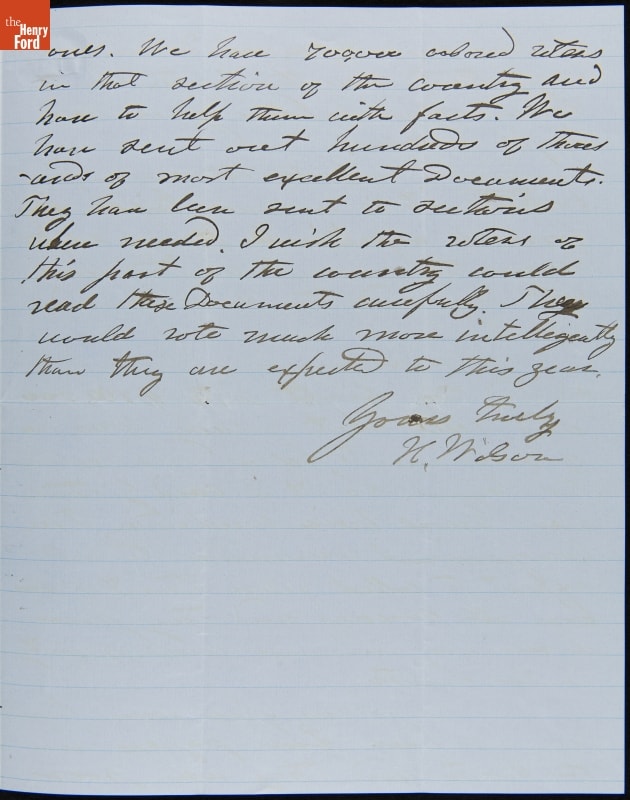 the
Henry
Ford
ones. We have 700,000 colored voters
in that section of the country and
have to help them with facts. We
have sent out hundreds of thous
-ands of most excellent Documents.
They have been sent to sections
when needed. I wish the voters of
this part of the country could
read these Documents carefully. They
would vote much more intelligently
than they are expected to this year.
Yours truly
H. Wilson